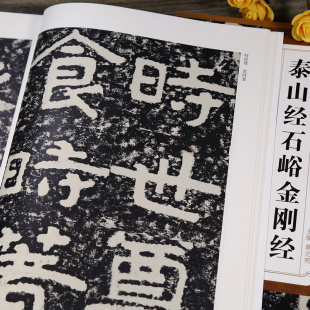 泰山经石峪金刚经
時世尊
食時著